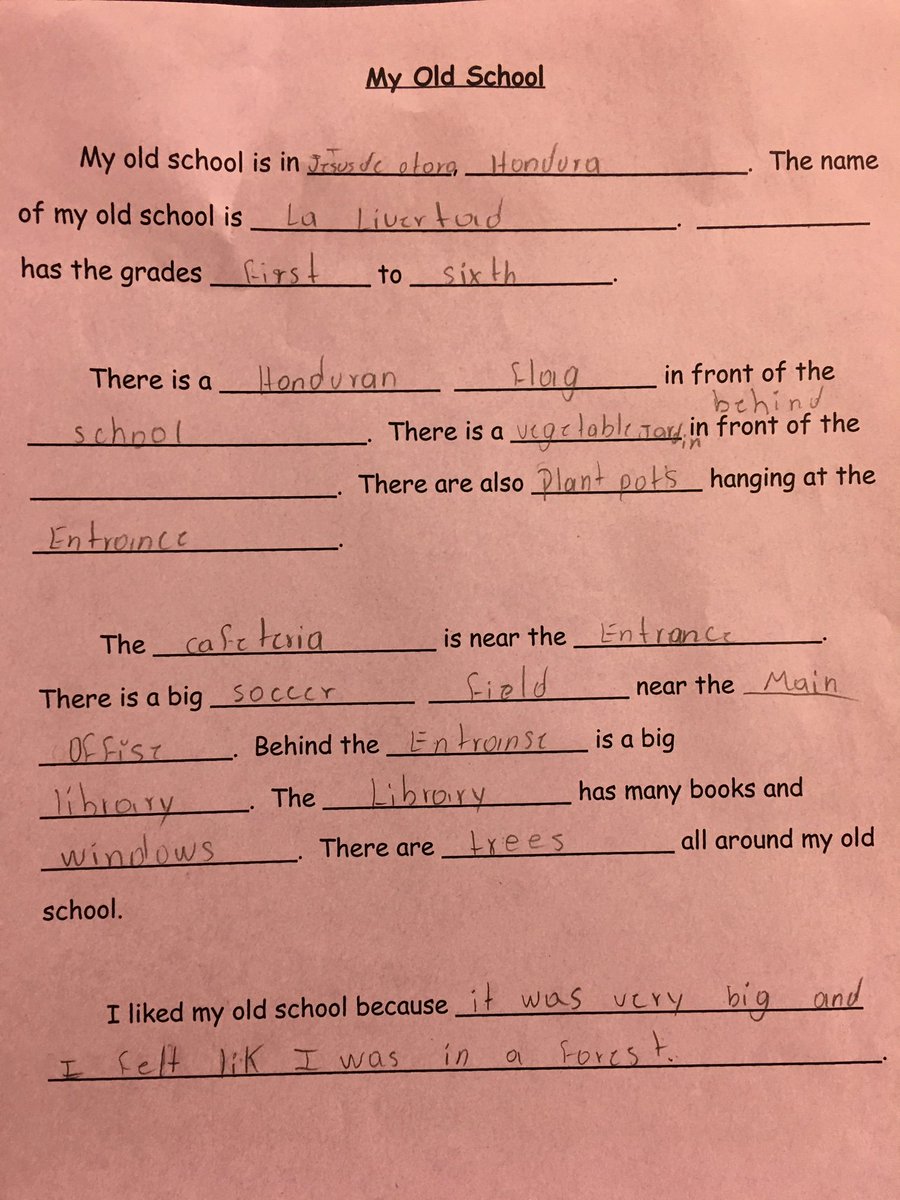 My Old School
My old school is in Jesus de otora, Hondura. The name
of my old school is La Livertad.
has the grades first to sixth.
There is a Honduran flag in front of the
behind
school. There is a vegetable garden in front of the
There are also Plant pots hanging at the
Entraince.
The cafeteria is near the Entrance.
There is a big soccer field near the Main
Offise. Behind the Entranse is a big
library. The Library has many books and
windows. There are trees all around my old
school.
I liked my old school because it was very big and
I felt lik I was in a forest.